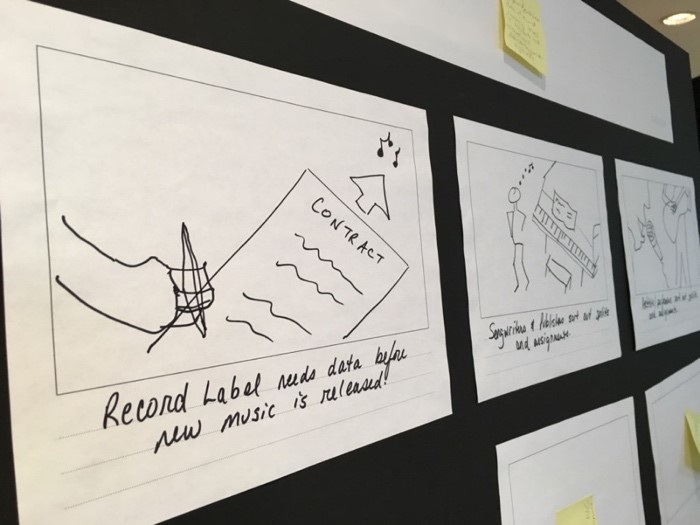 CONTRACT
Record Label needs data before
new music is released!
Songwriters & Publishers sort out splits
and assignments.
and assignments.